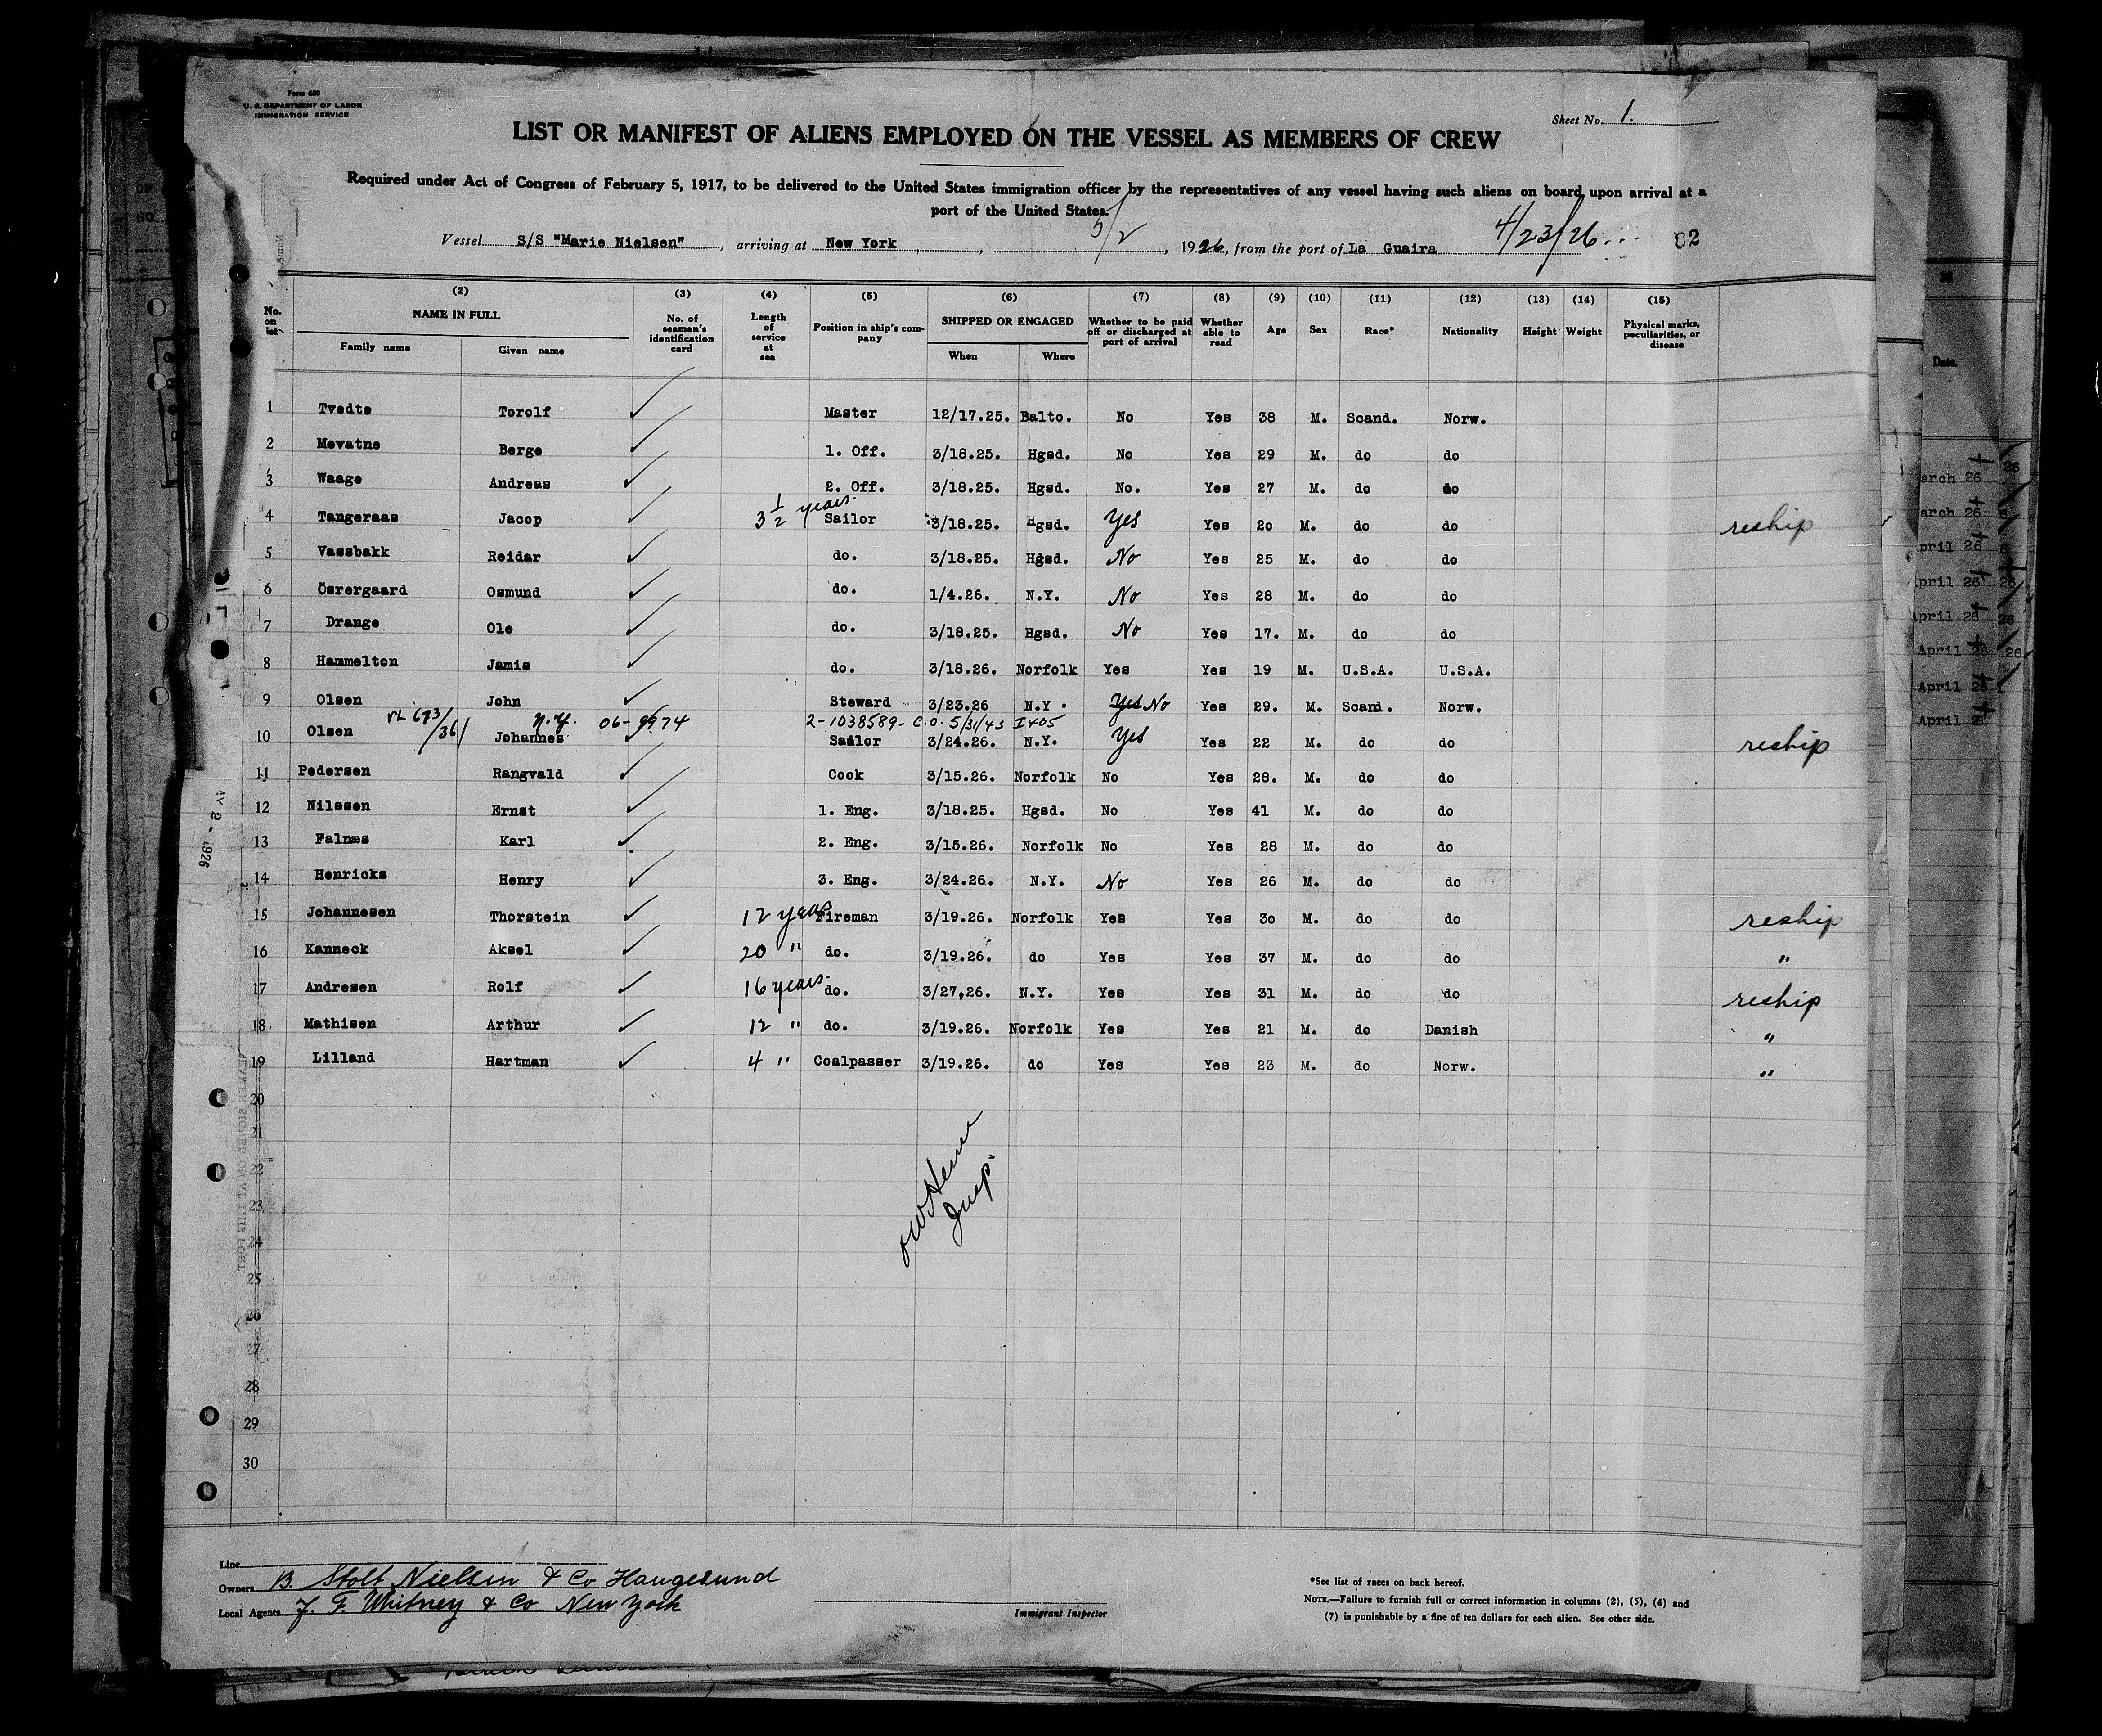 Form 680
U. S. DEPARTMENT OF LABOR
IMMIGRATION SERVICE
Sheet No. 1.
LIST OR MANIFEST OF ALIENS EMPLOYED ON THE VESSEL AS MEMBERS OF CREW
Required under Act of Congress of February 5, 1917, to be delivered to the United States immigration officer by the representatives of any vessel having such aliens on board upon arrival at a
port of the United States.
Vessel S/S "Marie Nielsen", arriving at New York, 5/2, 1926, from the port of La Guaira 4/23/26 82
No. on list (2) NAME IN FULL Family name Given name (3) No. of seaman's identification card (4) Length of service at sea (5) Position in ship's company (6) SHIPPED OR ENGAGED When Where (7) Whether to be paid off or discharged at port of arrival (8) Whether able to read (9) Age (10) Sex (11) Race* (12) Nationality (13) Height (14) Weight (15) Physical marks, peculiarities, or disease
1 Tvedte Torolf Master 12/17.25. Balto. No Yes 38 M. Scand. Norw.
2 Mevatne Berge 1. Off. 3/18.25. Hgsd. No Yes 29 M. do do
3 Waage Andreas 2. Off. 3/18.25. Hgsd. No. Yes 27 M. do do
4 Tangeraas Jacop 3 1/2 years. Sailor 3/18.25. Hgsd. Yes Yes 20 M. do do reship
5 Vassbakk Reidar do. 3/18.25. Hgsd. No Yes 25 M. do do
6 Ösrergaard Osmund do. 1/4.26. N.Y. No Yes 28 M. do do
7 Drange Ole do. 3/18.25. Hgsd. No Yes 17. M. do do
8 Hammelton Jamis do. 3/18.26. Norfolk Yes Yes 19 M. U.S.A. U.S.A.
9 Olsen John Steward 3/23.26 N.Y. Yes No Yes 29. M. Scand. Norw.
n.y. 2-1038589- C.O. 5/31/43 I405
10 Olsen Johannes Sailor 3/24.26. N.Y. Yes Yes 22 M. do do reship
11 Pedersen Rangvald Cook 3/15.26. Norfolk No Yes 28. M. do do
12 Nilssen Ernst 1. Eng. 3/18.25. Hgsd. No Yes 41 M. do do
13 Falnæs Karl 2. Eng. 3/15.26. Norfolk No Yes 28 M. do do
14 Henricks Henry 3. Eng. 3/24.26. N.Y. No Yes 26 M. do do
15 Johannesen Thorstein 12 years Fireman 3/19.26. Norfolk Yes Yes 30 M. do do reship
16 Kanneck Aksel 20 " do. 3/19.26. do Yes Yes 37 M. do do "
17 Andresen Rolf 16 years. do. 3/27,26. N.Y. Yes Yes 31 M. do do reship
18 Mathisen Arthur 12 " do. 3/19.26. Norfolk Yes Yes 21 M. do Danish "
19 Lilland Hartman 4 " Coalpasser 3/19.26. do Yes Yes 23 M. do Norw. "
20
21
22
23
24
25
26
27
28
29
30
Insp.
Line
Owners B. Stolt Nielsen & Co Haugesund
Local Agents J. F. Whitney & Co New York
Immigrant Inspector
*See list of races on back hereof.
NOTE.—Failure to furnish full or correct information in columns (2), (5), (6) and
(7) is punishable by a fine of ten dollars for each alien. See other side.
Date.
arch 26
arch 26
pril 26
pril 26
April 26
April 26
April 26
April 2